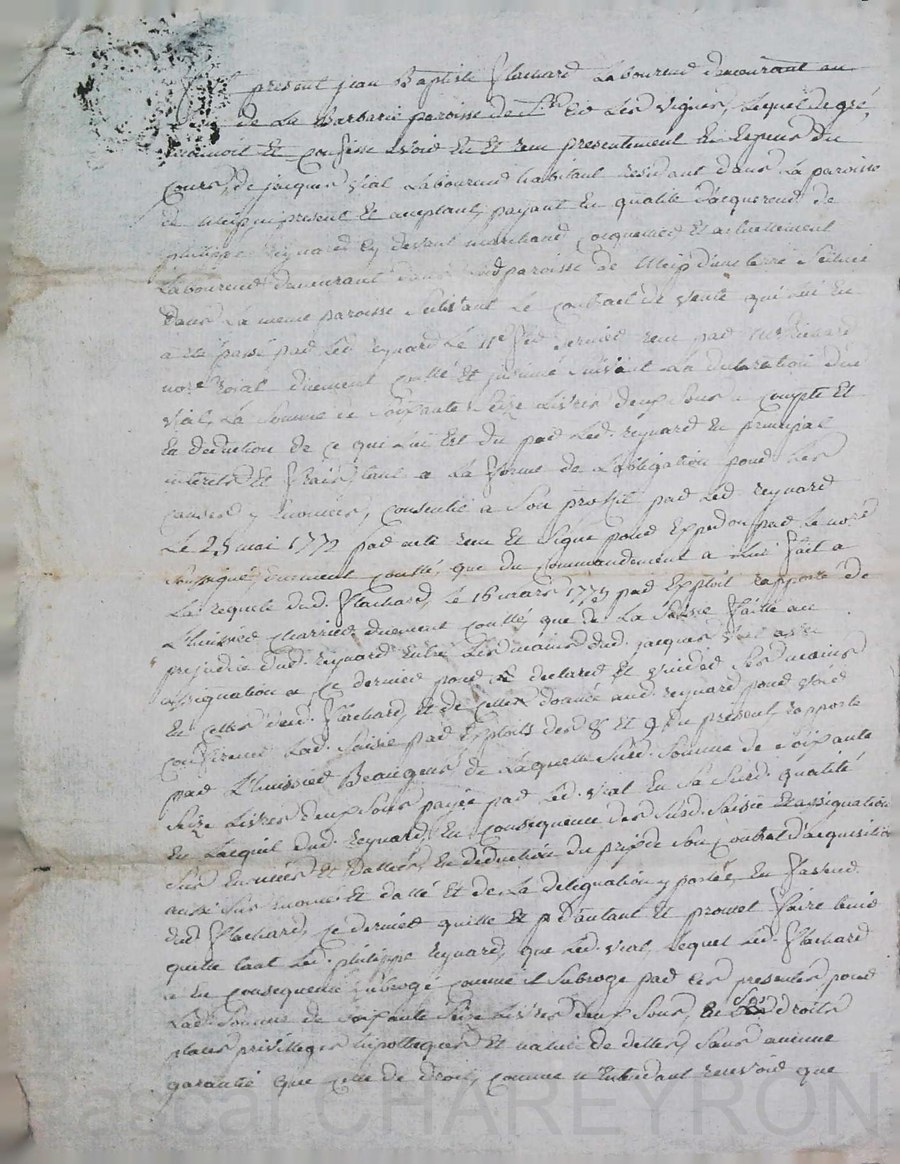 present jean Baptiste Flachard Laboureur demeurant au
de La Barbarie paroisse de St Cir Les vignes, Lequel de gré
reconnoit Et Confesse avoir Eu Et reçu presentement En Especes du
Cours, de jacques vial Laboureur habitant residant dans La paroisse
de present Et aceptant, payant En qualité d'acquereur de
philippe reynard cy devant marchand Et actuellement
Laboureur demeurant dans Lad paroisse de d'une terre Scituée
dans La meme paroisse Suivant Le Contract de vente qui Lui En
a été passé par Led reynard Le 11e dernier reçu par
nore roial duement Collé Et Suivant La declaration dud
vial, La Somme de Soixante Seize Livres deux Sous a Compte Et
En deduction de Ce qui Lui Est du par Led. reynard En principal
interets Et frais tant a La forme de L'obligation pour Les
Causes y Enoncées, Consentie a Son proffit par Led reynard
Le 25 mai 1772 par acte reçu Et Signé pour Expedon par Le nore
Soussigné, duement Collé, que du Commandement a Lui fait a
La requete dud. Flachard, Le 16 mars 177 par Exploit rapporté de
L'huissier Charrier duement Collé, que de La Saisie faitte au
prejudice dud. reynard Entre Les mains dud. jacques vial avec
assignation a Ce dernier pour declarer Et vuider Ses mains
En Celles dud. Flachard, Et de Celle donnée aud. reynard pour voir
Confirmer Lad. Saisie par Exploits des 8 Et 9 du present, rapporté
par L'huissier Beaugeur de Laquelle Susd. Somme de Soixante
Seize Livres deux Sous payée par Led. vial En Sa Susd. qualité
En L'acquit dud. reynard, En Consequence des Susd. Saisie Et assignation
Sus Enoncées Et dattées, En deduction du prix de Son Contrat d'acquisition
aussi Sus Enoncé Et datté Et de La delegation y portée, En faveur
dud Flachard, Ce dernier quitte Et d'autant Et promet faire tenir
quitte tant Led. philippe reynard, que Led. vial, Lequel Led. Flachard
a En Consequence Subrogé Comme il Subroge par Ces presentes pour
Lad. Somme de Soixante Seize Livres deux Sous, droits
places privilleges hipotteques Et nature de dettes, Sans aucune
garantie que Celle de droit, Comme n'Entendant recevoir que
Pascal CHAREYRON